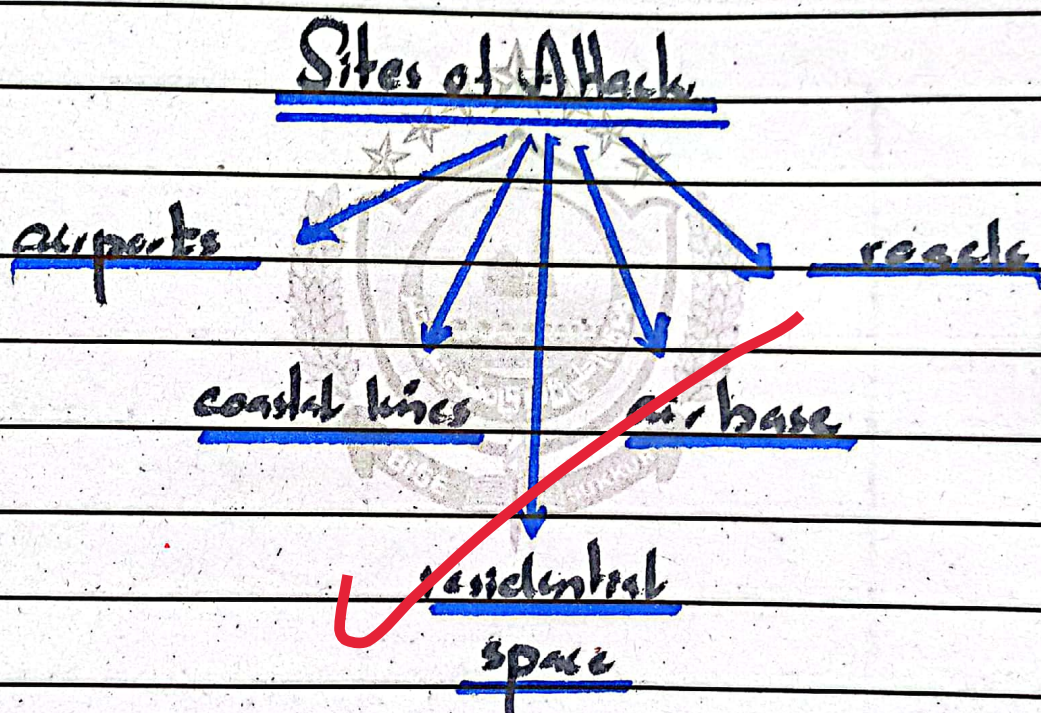 Sites of Attack
airports
roads
coastal lines
air base
residential
space
BISE
SUKKUR